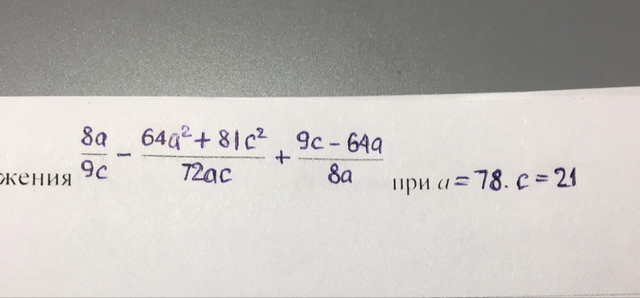 жения 8a/9c − (64a² + 81c²)/72ac + (9c − 64a)/8a при a = 78. c = 21